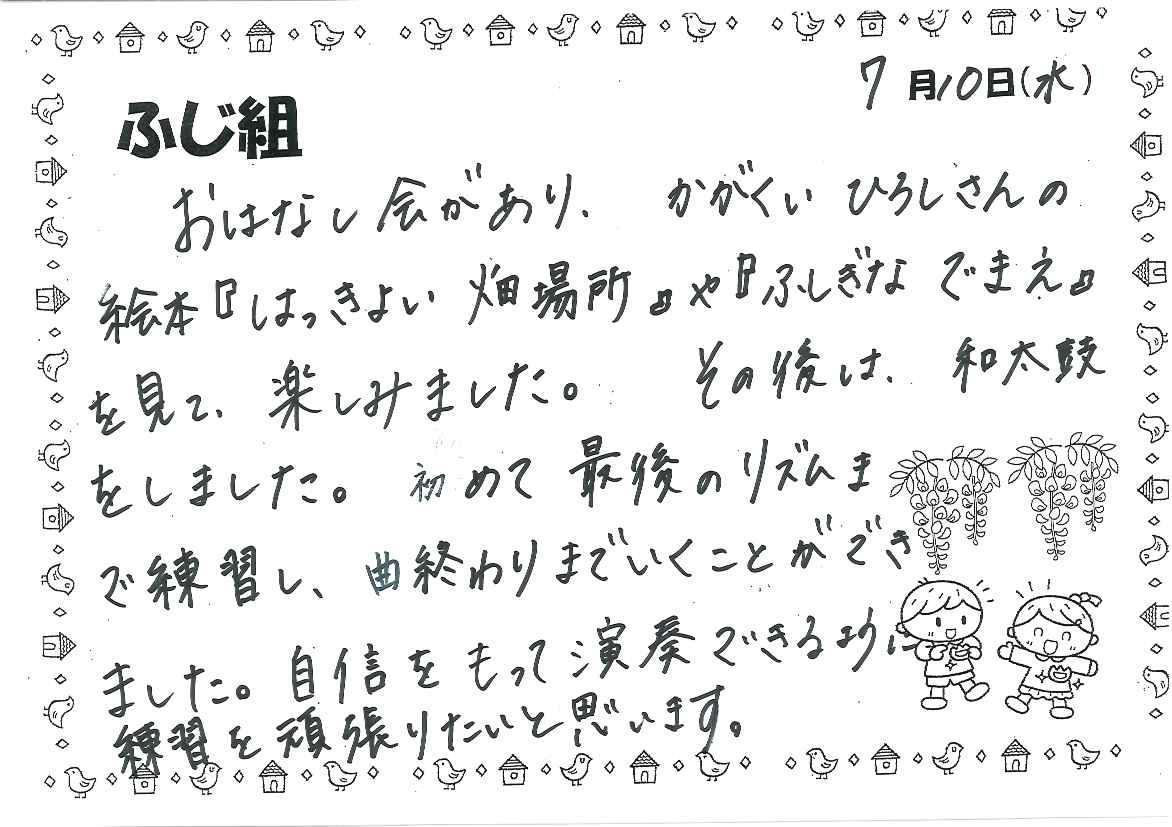 7月10日(水)
ふじ組
おはなし会があり、かがくいひろしさんの
絵本『はっきよい畑場所』や『ふしぎなでまえ』
を見て、楽しみました。その後は、和太鼓
をしました。初めて最後のリズムま
で練習し、曲終わりまでいくことができ
ました。自信をもって演奏できるように
練習を頑張りたいと思います。